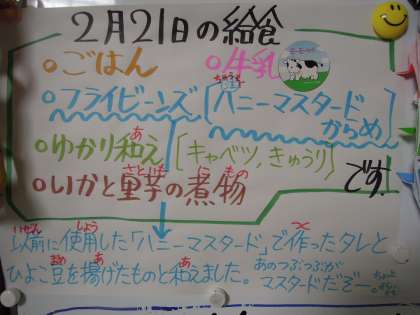 2月21日の給食
ごはん
牛乳
フライビーンズ
ちゅうもく
ハニーマスタード
からめ
ゆかり和え
あ
キャベツ,きゅうり
いかと里芋の煮物
さといも
に もの
です。
いぜん しよう つく
以前に使用した「ハニーマスタード」で作ったタレと
まめ あ あ
ひよこ豆を揚げたものと和えました。
あのつぶつぶが
マスタードだぞー。